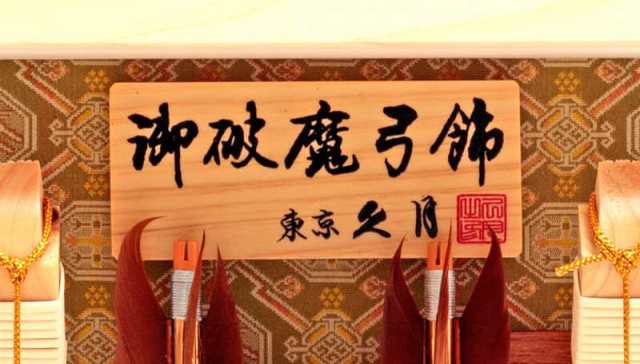 御破魔弓飾
東京久月